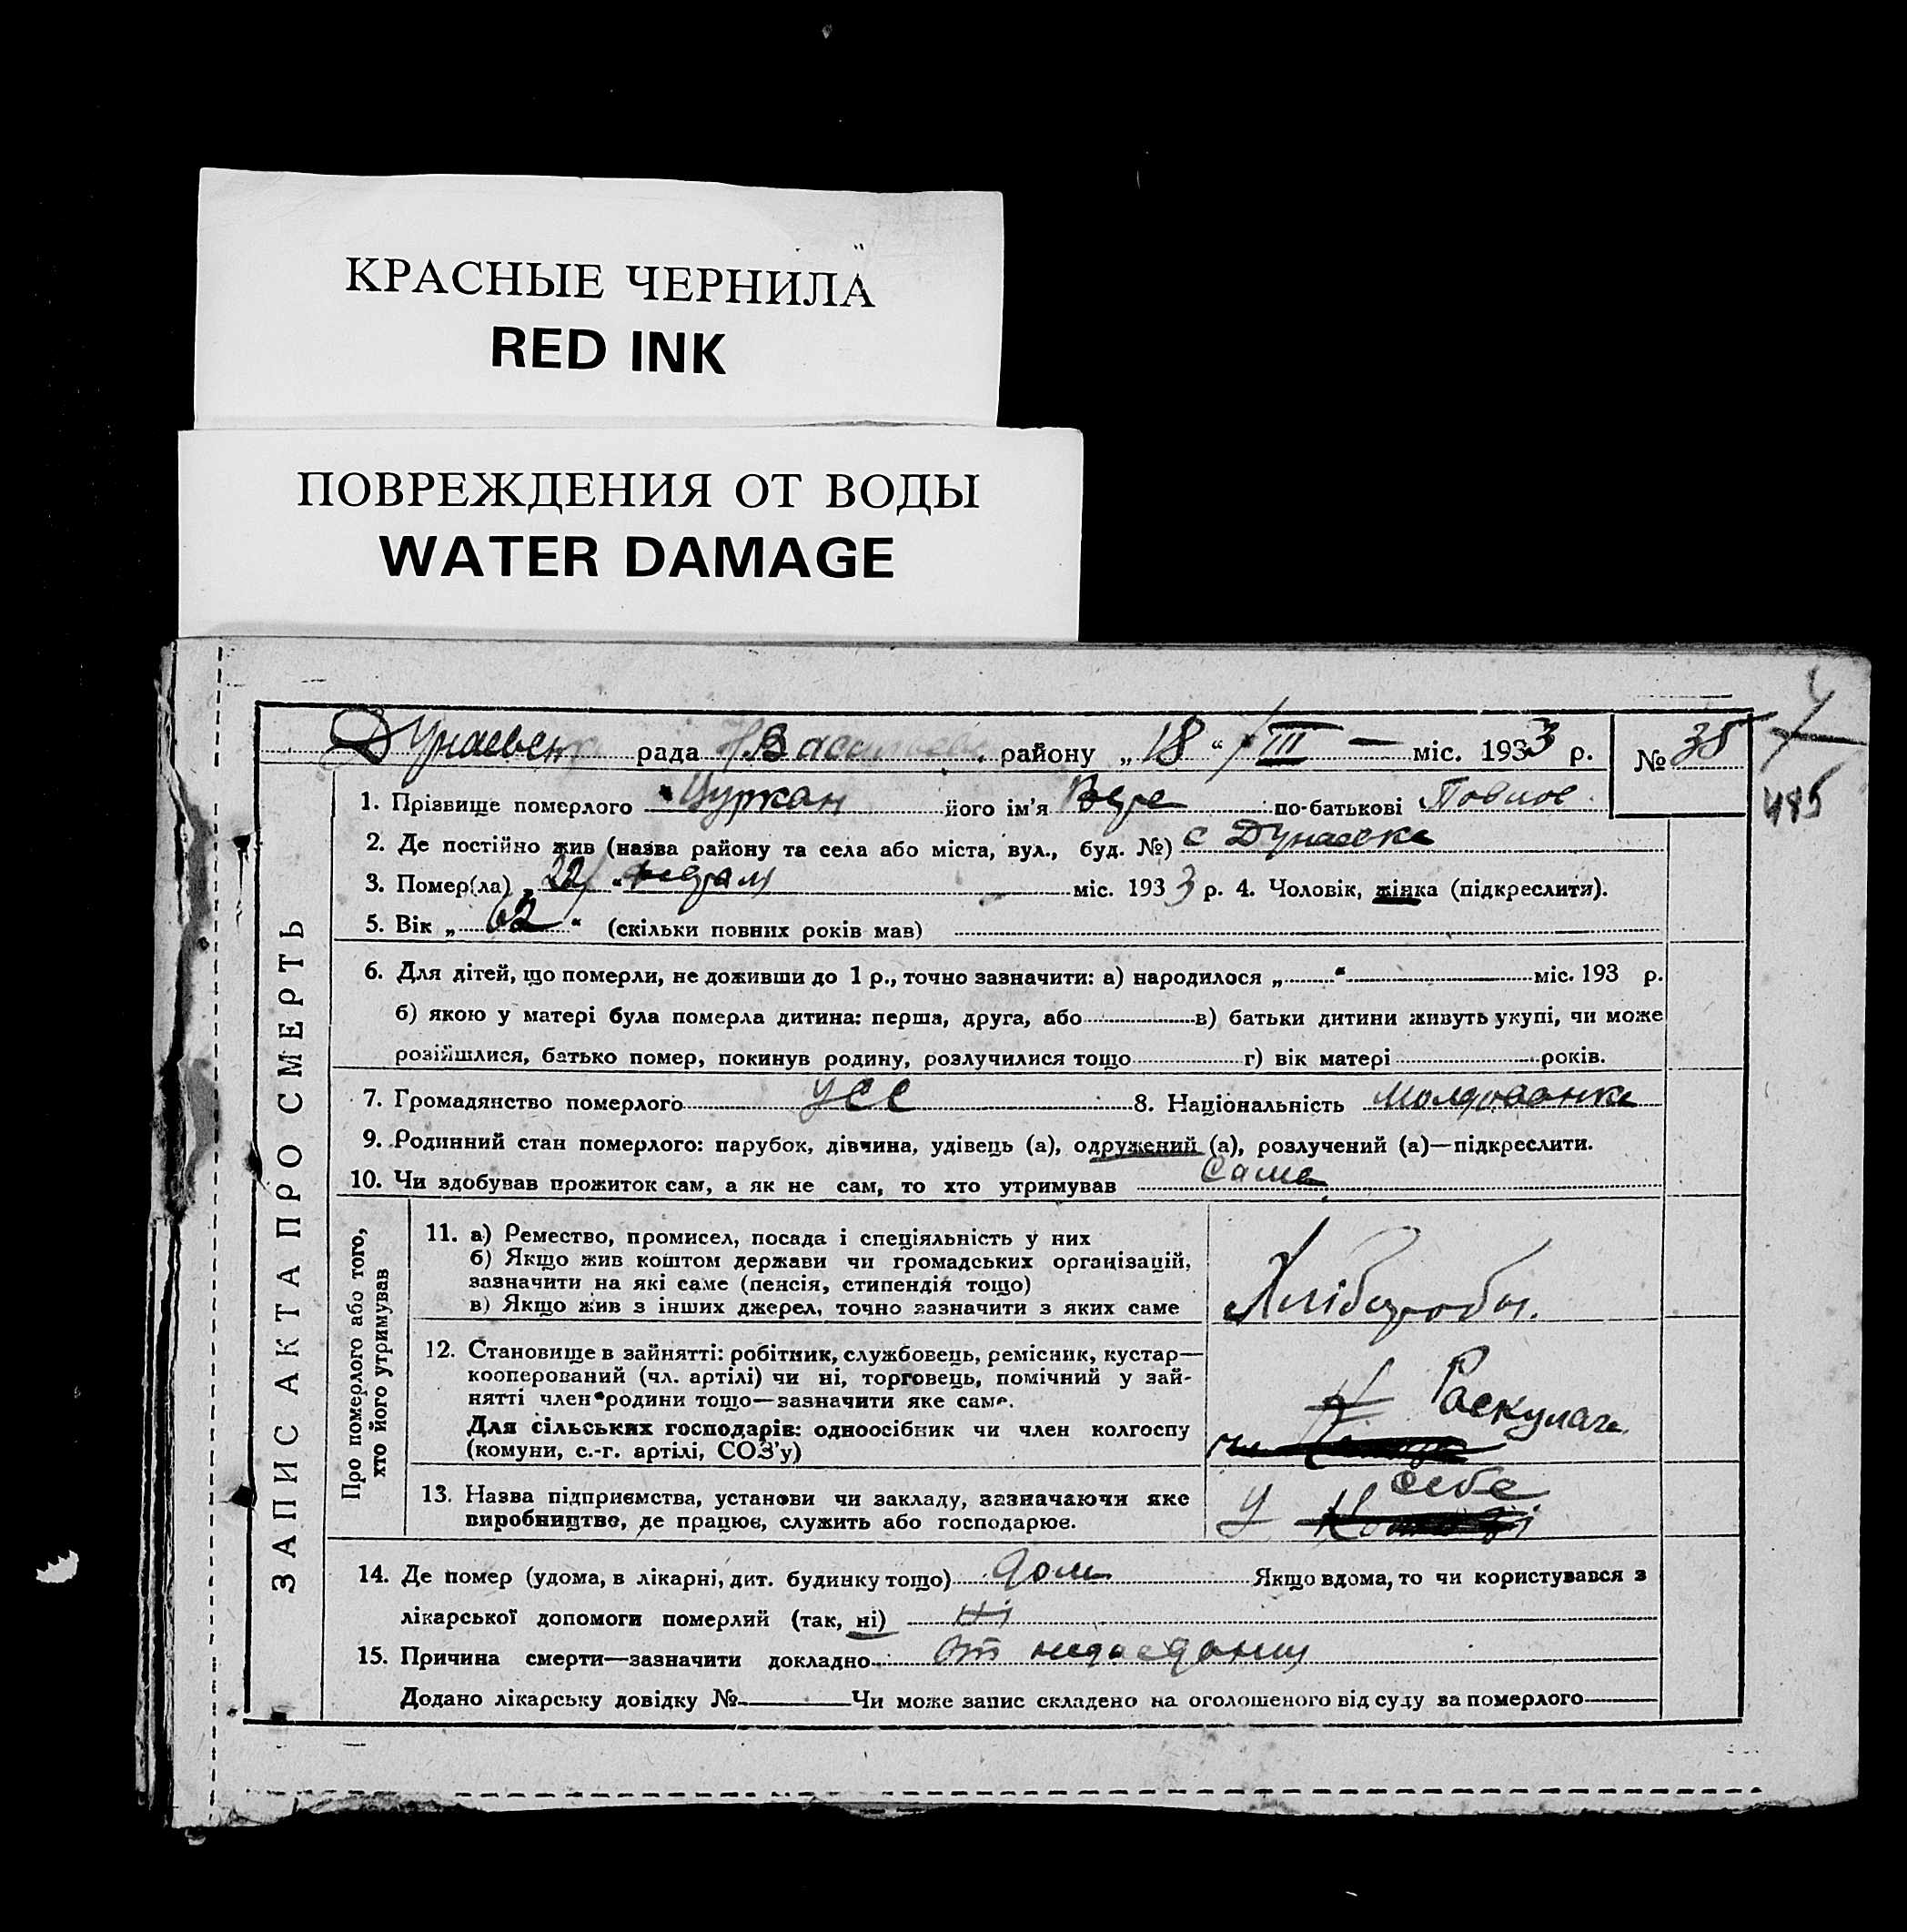 КРАСНЫЕ ЧЕРНИЛА
RED INK
ПОВРЕЖДЕНИЯ ОТ ВОДЫ
WATER DAMAGE
рада району „18“ III міс. 1933 р. № 35
485
ЗАПИС АКТА ПРО СМЕРТЬ
1. Прізвище померлого Цуркан його ім'я по-батькові
2. Де постійно жив (назва району та села або міста, вул., буд. №) с Дунаевка
3. Помер(ла) „22“ февраля міс. 1933 р. 4. Чоловік, жінка (підкреслити).
5. Вік „62“ (скільки повних років мав)
6. Для дітей, що померли, не доживши до 1 р., точно зазначити: а) народилося „ “ міс. 193 р.
б) якою у матері була померла дитина: перша, друга, або в) батьки дитини живуть укупі, чи може
розійшлися, батько помер, покинув родину, розлучилися тощо г) вік матері років.
7. Громадянство померлого УСС 8. Національність Молдованка
9. Родинний стан померлого: парубок, дівчина, удівець (а), одружений (а), розлучений (а)—підкреслити.
10. Чи здобував прожиток сам, а як не сам, то хто утримував Сама
Про померлого або того, хто його утримував
11. а) Ремество, промисел, посада і спеціяльність у них
б) Якщо жив коштом держави чи громадських організацій,
зазначити на які саме (пенсія, стипендія тощо)
в) Якщо жив з інших джерел, точно зазначити з яких саме
Хлібороби.
12. Становище в зайнятті: робітник, службовець, ремісник, кустар—
кооперований (чл. артілі) чи ні, торговець, помічний у зай-
нятті член родини тощо—зазначити яке саме.
Для сільських господарів: одноосібник чи член колгоспу
(комуни, с.-г. артілі, СОЗ'у)
Раскулач
13. Назва підприємства, установи чи закладу, зазначаючи яке
виробництво, де працює, служить або господарює.
У себе
14. Де помер (удома, в лікарні, дит. будинку тощо) дома Якщо вдома, то чи користувався з
лікарської допомоги померлий (так, ні) ні
15. Причина смерти—зазначити докладно от недоедания
Додано лікарську довідку № Чи може запис складено на оголошеного від суду за померлого